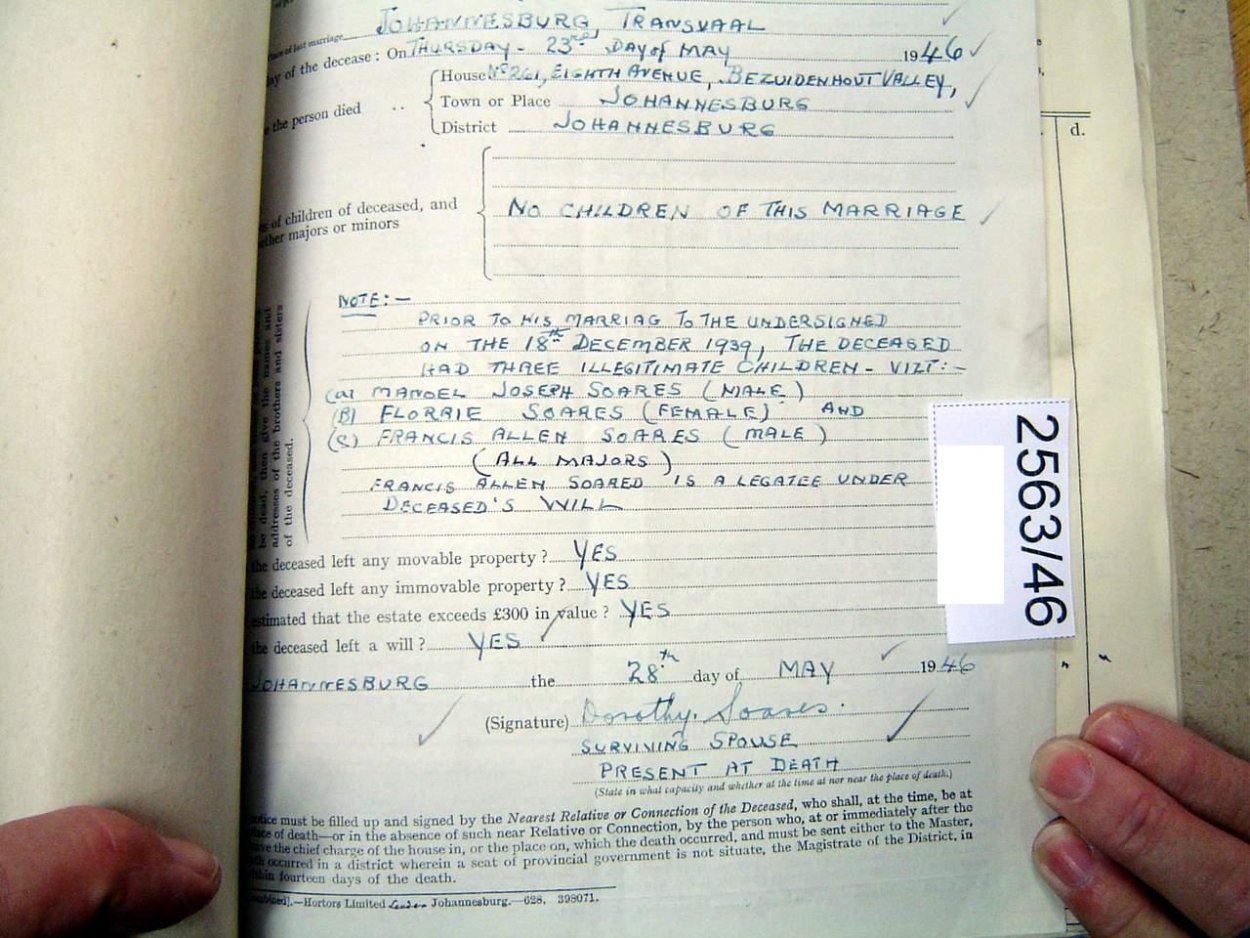 JOHANNESBURG, TRANSVAAL
of last marriage
ay of the decease : On THURSDAY - 23rd DAY of MAY 1946
House No 261, EIGHTH AVENUE, BEZUIDENHOUT VALLEY,
e the person died .. Town or Place JOHANNESBURG
District JOHANNESBURG
d.
of children of deceased, and
ther majors or minors
NO CHILDREN OF THIS MARRIAGE
NOTE:-
PRIOR TO HIS MARRIAG TO THE UNDERSIGNED
ON THE 18th DECEMBER 1939, THE DECEASED
HAD THREE ILLEGITIMATE CHILDREN - VIZT:-
(a) MANOEL JOSEPH SOARES (MALE)
(B) FLORRIE SOARES (FEMALE) AND
(C) FRANCIS ALLEN SOARES (MALE)
(ALL MAJORS)
FRANCIS ALLEN SOARED IS A LEGATEE UNDER
DECEASED'S WILL
be dead, then give the names and
addresses of the brothers and sisters
of the deceased.
2563/46
the deceased left any movable property? YES
the deceased left any immovable property? YES
estimated that the estate exceeds £300 in value? YES
the deceased left a will? YES
JOHANNESBURG the 28th day of MAY 1946
(Signature) Dorothy. Soares.
SURVIVING SPOUSE
PRESENT AT DEATH
(State in what capacity and whether at the time at nor near the place of death.)
otice must be filled up and signed by the Nearest Relative or Connection of the Deceased, who shall, at the time, be at
ace of death—or in the absence of such near Relative or Connection, by the person who, at or immediately after the
ave the chief charge of the house in, or the place on, which the death occurred, and must be sent either to the Master,
th occurred in a district wherein a seat of provincial government is not situate, the Magistrate of the District, in
thin fourteen days of the death.
—Hortors Limited Johannesburg.—628, 398071.